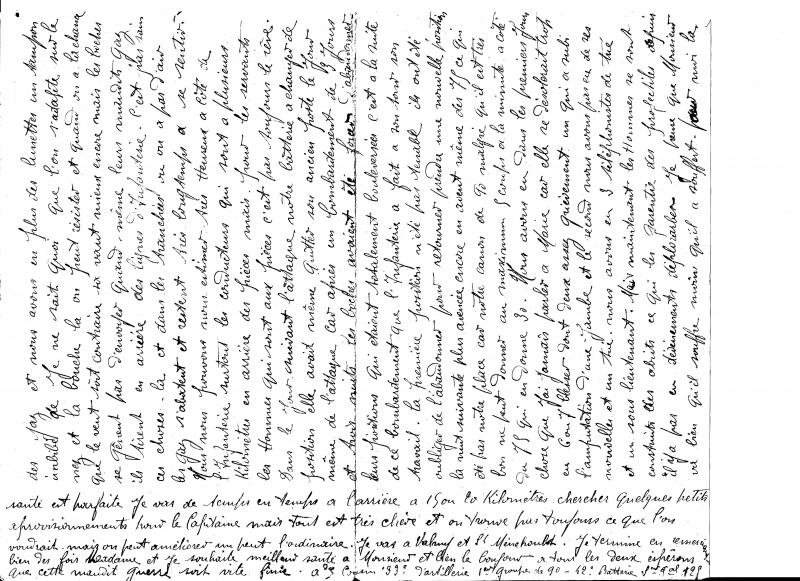 des gaz et nous avons en plus des lunettes un tampon
imbibé de je ne sait quoi que l'on s'adapte sur le
nez et la bouche la on peut resister et quand on a la chance
que le vent soit contraire sa vaut mieux encore mais les boches
se gênent pas d'envoyer quand même leurs maudits gaz
ils tirent en arrière des lignes d'Infanterie. C'est pas sain
ces choses-la et dans les tranchées ou on a pas d'air
les gaz s'abatent et restent très longtemps a se sentir.
Nous nous pouvons nous estimer très Heureux a côté de
l'Infanterie surtout les conducteurs qui sont a plusieurs
Kilometres en arrière des pièces mais pour les servants
les Hommes qui sont aux pièces c'est pas toujours le rêve.
Dans le Jour suivant l'attaque nôtre battrie a changer de
position elle avait même quitter son ancien poste le Jour
même de l'attaque car après un bombardement de 3 Jours
et trois nuits les boches avaient été forcer d'abandonner
leurs positions qui étaient totalement bouleversées c'est a la suite
de ce bombardement que l'Infanterie a fait a son tour son
travail. la première position n'été pas tenable ils ont été
obliger de l'abandonner pour retourner prendre une nouvelle position
la nuit suivante plus avancée encore en avant même des 75 ce qui
été pas notre place car notre canon de 90 malgré qu'il est très
bon ne peut donner au maximum 5 coups a la minute a coté
du 75 qui en donne 30. Nous avons eu dans les premiers Jours
chose que J'ai Jamais parler a Marie car elle se desolerait trop
en 6 ou 7 blesser dont deux assez grièvement un qui a subi
l'amputation d'une Jambe et le second nous avons pas eu de ses
nouvelles et un tué. nous avons eu 3 téléphonistes de tué
et un sous lieutenant. Mais maintenant les Hommes se sont
construits des abris ce qui les garantie des projectiles depuis
il n'y a pas eu d'evènements déplorables. Je pense que Monsieur
va bien qu'il souffre moins qu'il a souffert la
santé est parfaite Je vas de temps en temps a l'arrière a 15 ou 20 Kilomètres chercher quelques petits
aprovisionnements pour le Capitaine mais tout est très chère et on trouve pas toujours ce que l'on
voudrait mais on peut améliorer un peut l'ordinaire. Je vas a Valmy et St Menehoulde. Je termine en
bien des fois Madame et Je souhaite meilleur santé a Monsieur et bien le bonjour a tous les deux espérons
que cette maudit guerre soit vite finie. Cousin 33e d'artillerie 1er groupe de 90 - 42e Batterie